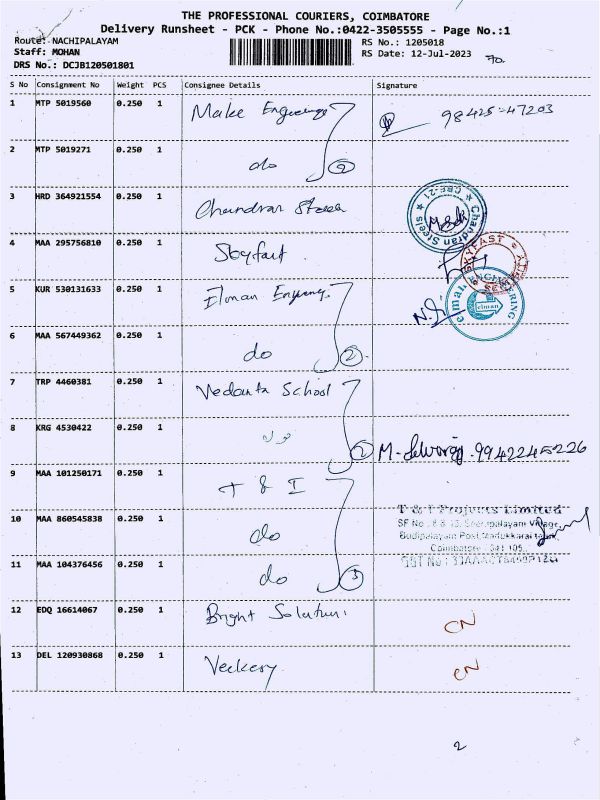 THE PROFESSIONAL COURIERS, COIMBATORE
Delivery Runsheet - PCK - Phone No.:0422-3505555 - Page No.:1
Route: NACHIPALAYAM
RS No.: 1205018
Staff: MOHAN
RS Date: 12-Jul-2023
70.
DRS No.: DCJB120501801
S No Consignment No Weight PCS Consignee Details Signature
1 MTP 5019560 0.250 1 Make 98425-47203
2 MTP 5019271 0.250 1 do 2
3 HRD 364921554 0.250 1 Chandran
CBE-21 ★ Chandran Steels ★
4 MAA 295756810 0.250 1
5 KUR 530131633 0.250 1
ENGINEERING
elman
6 MAA 567449362 0.250 1 do 2
7 TRP 4460381 0.250 1 Vedanta School
8 KRG 4530422 0.250 1 2 9942245226
9 MAA 101250171 0.250 1 T & I
T & I Projects Limited
10 MAA 860545838 0.250 1 do
Coimbatore - 641 105
11 MAA 104376456 0.250 1 do 3
12 EDQ 16614067 0.250 1 Bright Solution CN
13 DEL 120930868 0.250 1 CN
2